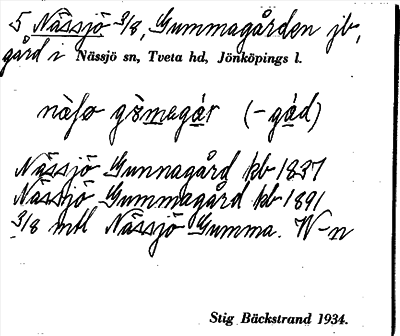 5 Nässjö 3/8, Gummagården jb,
gård i Nässjö sn, Tveta hd, Jönköpings l.
(-gåd)
Nässjö Gunnagård kb 1837
Nässjö Gummagård kb 1891
3/8 mtl Nässjö Gumma. W-n
Stig Bäckstrand 1934.